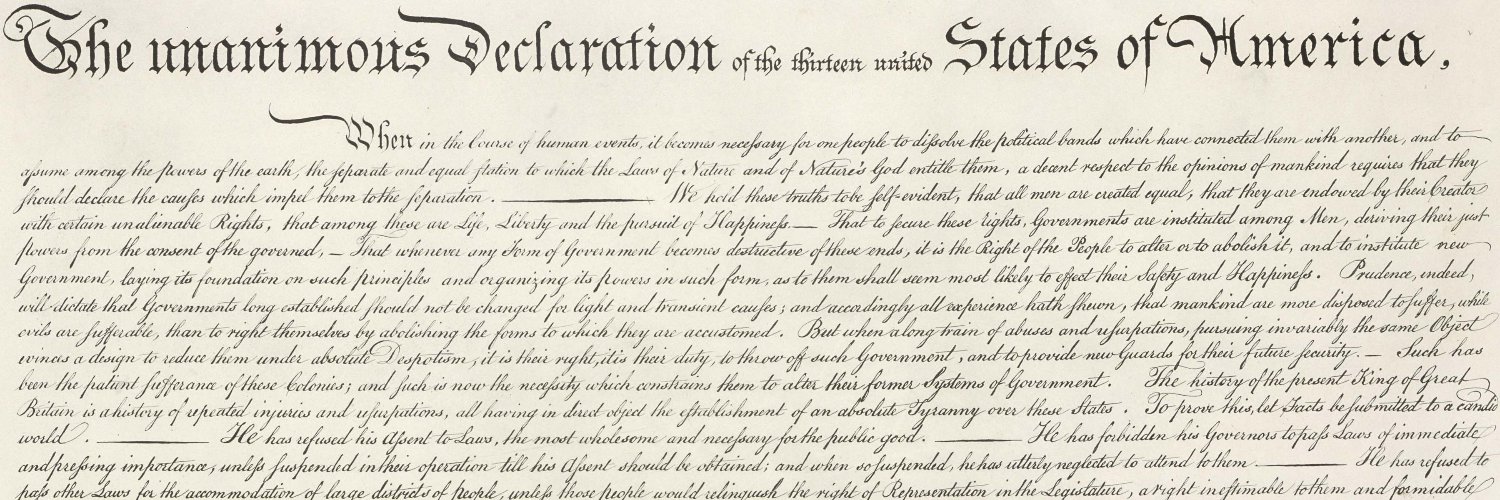 The unanimous Declaration of the thirteen united States of America,
When in the Course of human events, it becomes necessary for one people to dissolve the political bands which have connected them with another, and to
assume among the powers of the earth, the separate and equal station to which the Laws of Nature and of Nature's God entitle them, a decent respect to the opinions of mankind requires that they
should declare the causes which impel them to the separation. ——— We hold these truths to be self-evident, that all men are created equal, that they are endowed by their Creator
with certain unalienable Rights, that among these are Life, Liberty and the pursuit of Happiness.— That to secure these rights, Governments are instituted among Men, deriving their just
powers from the consent of the governed, — That whenever any Form of Government becomes destructive of these ends, it is the Right of the People to alter or to abolish it, and to institute new
Government, laying its foundation on such principles and organizing its powers in such form, as to them shall seem most likely to effect their Safety and Happiness. Prudence, indeed,
will dictate that Governments long established should not be changed for light and transient causes; and accordingly all experience hath shewn, that mankind are more disposed to suffer, while
evils are sufferable, than to right themselves by abolishing the forms to which they are accustomed. But when a long train of abuses and usurpations, pursuing invariably the same Object
evinces a design to reduce them under absolute Despotism, it is their right, it is their duty, to throw off such Government, and to provide new Guards for their future security. — Such has
been the patient sufferance of these Colonies; and such is now the necessity which constrains them to alter their former Systems of Government. The history of the present King of Great
Britain is a history of repeated injuries and usurpations, all having in direct object the establishment of an absolute Tyranny over these States. To prove this, let Facts be submitted to a candid
world. ——— He has refused his Assent to Laws, the most wholesome and necessary for the public good. ——— He has forbidden his Governors to pass Laws of immediate
and pressing importance, unless suspended in their operation till his Assent should be obtained; and when so suspended, he has utterly neglected to attend to them. ——— He has refused to
pass other Laws for the accommodation of large districts of people, unless those people would relinquish the right of Representation in the Legislature, a right inestimable to them and formidable